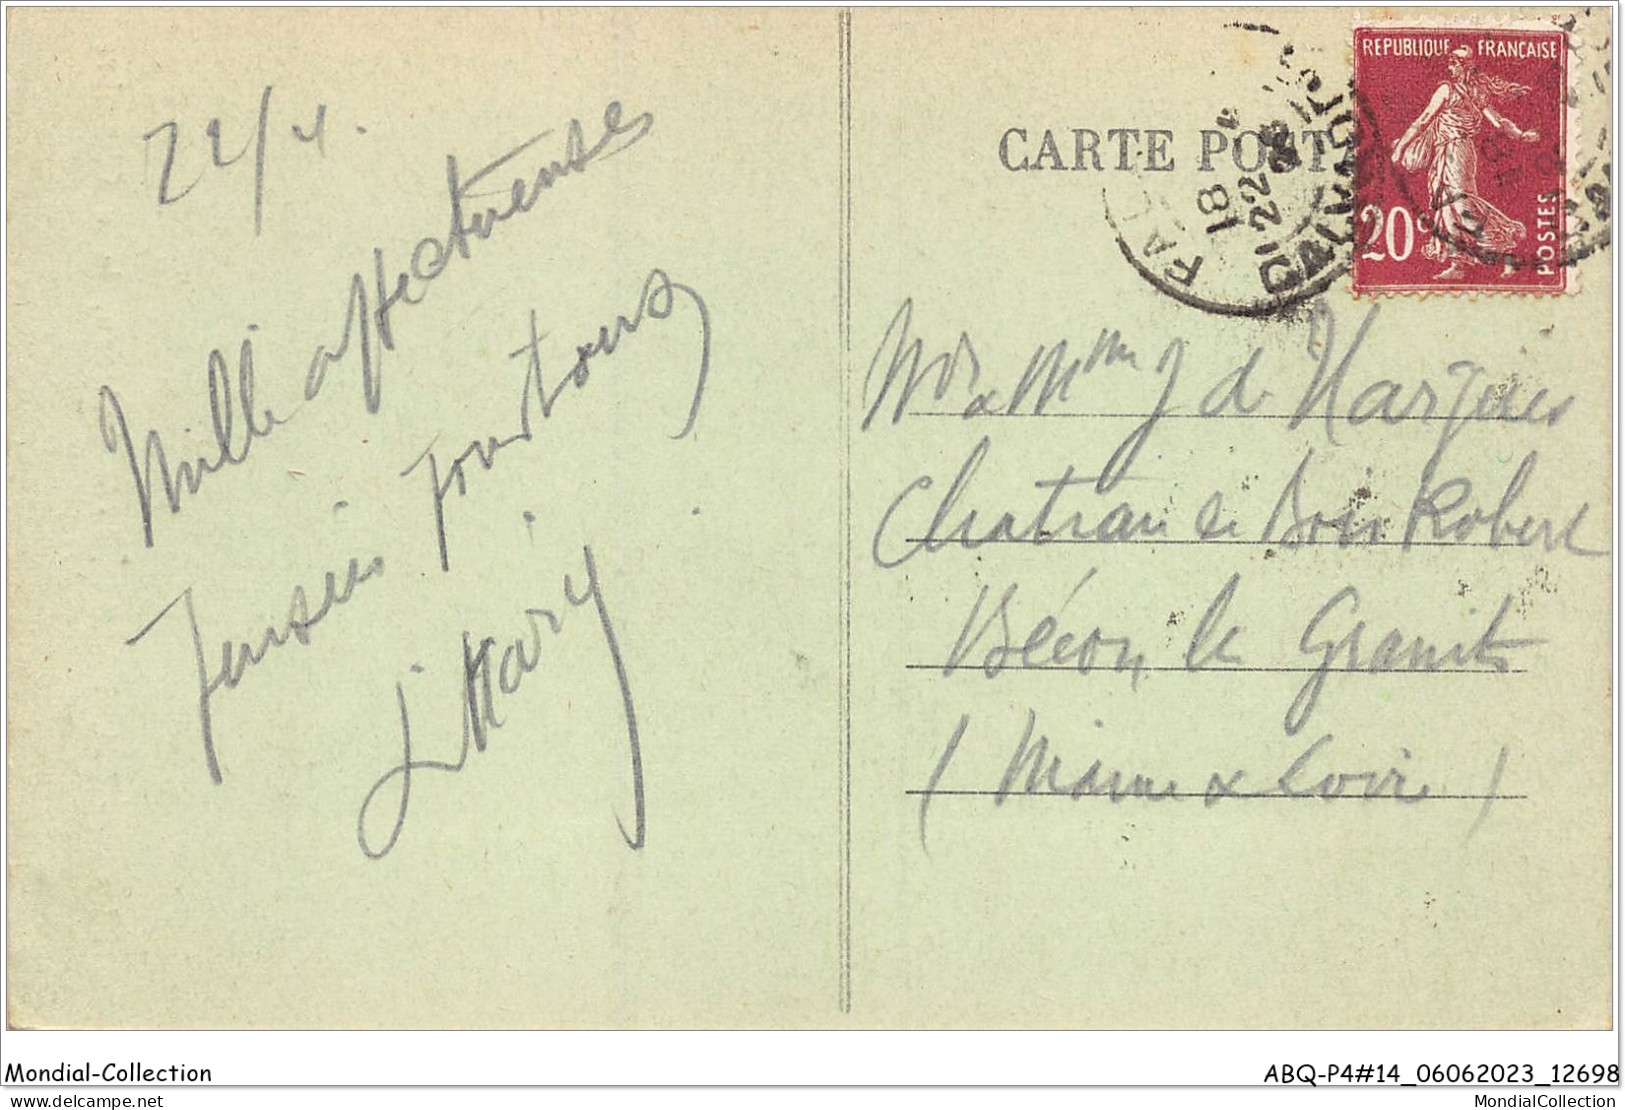 22/4.
Mille affectueuses
pensées pour tous
Mary
CARTE POST
REPUBLIQUE FRANCAISE
20c
POSTES
18
22
CALVADOS
Mr & Mme J de
Château de Bois Robert
Bécon les Granits
(Maine & Loire)
Mondial-Collection
ABQ-P4#14_06062023_12698
delcampe.net
MondialCollection